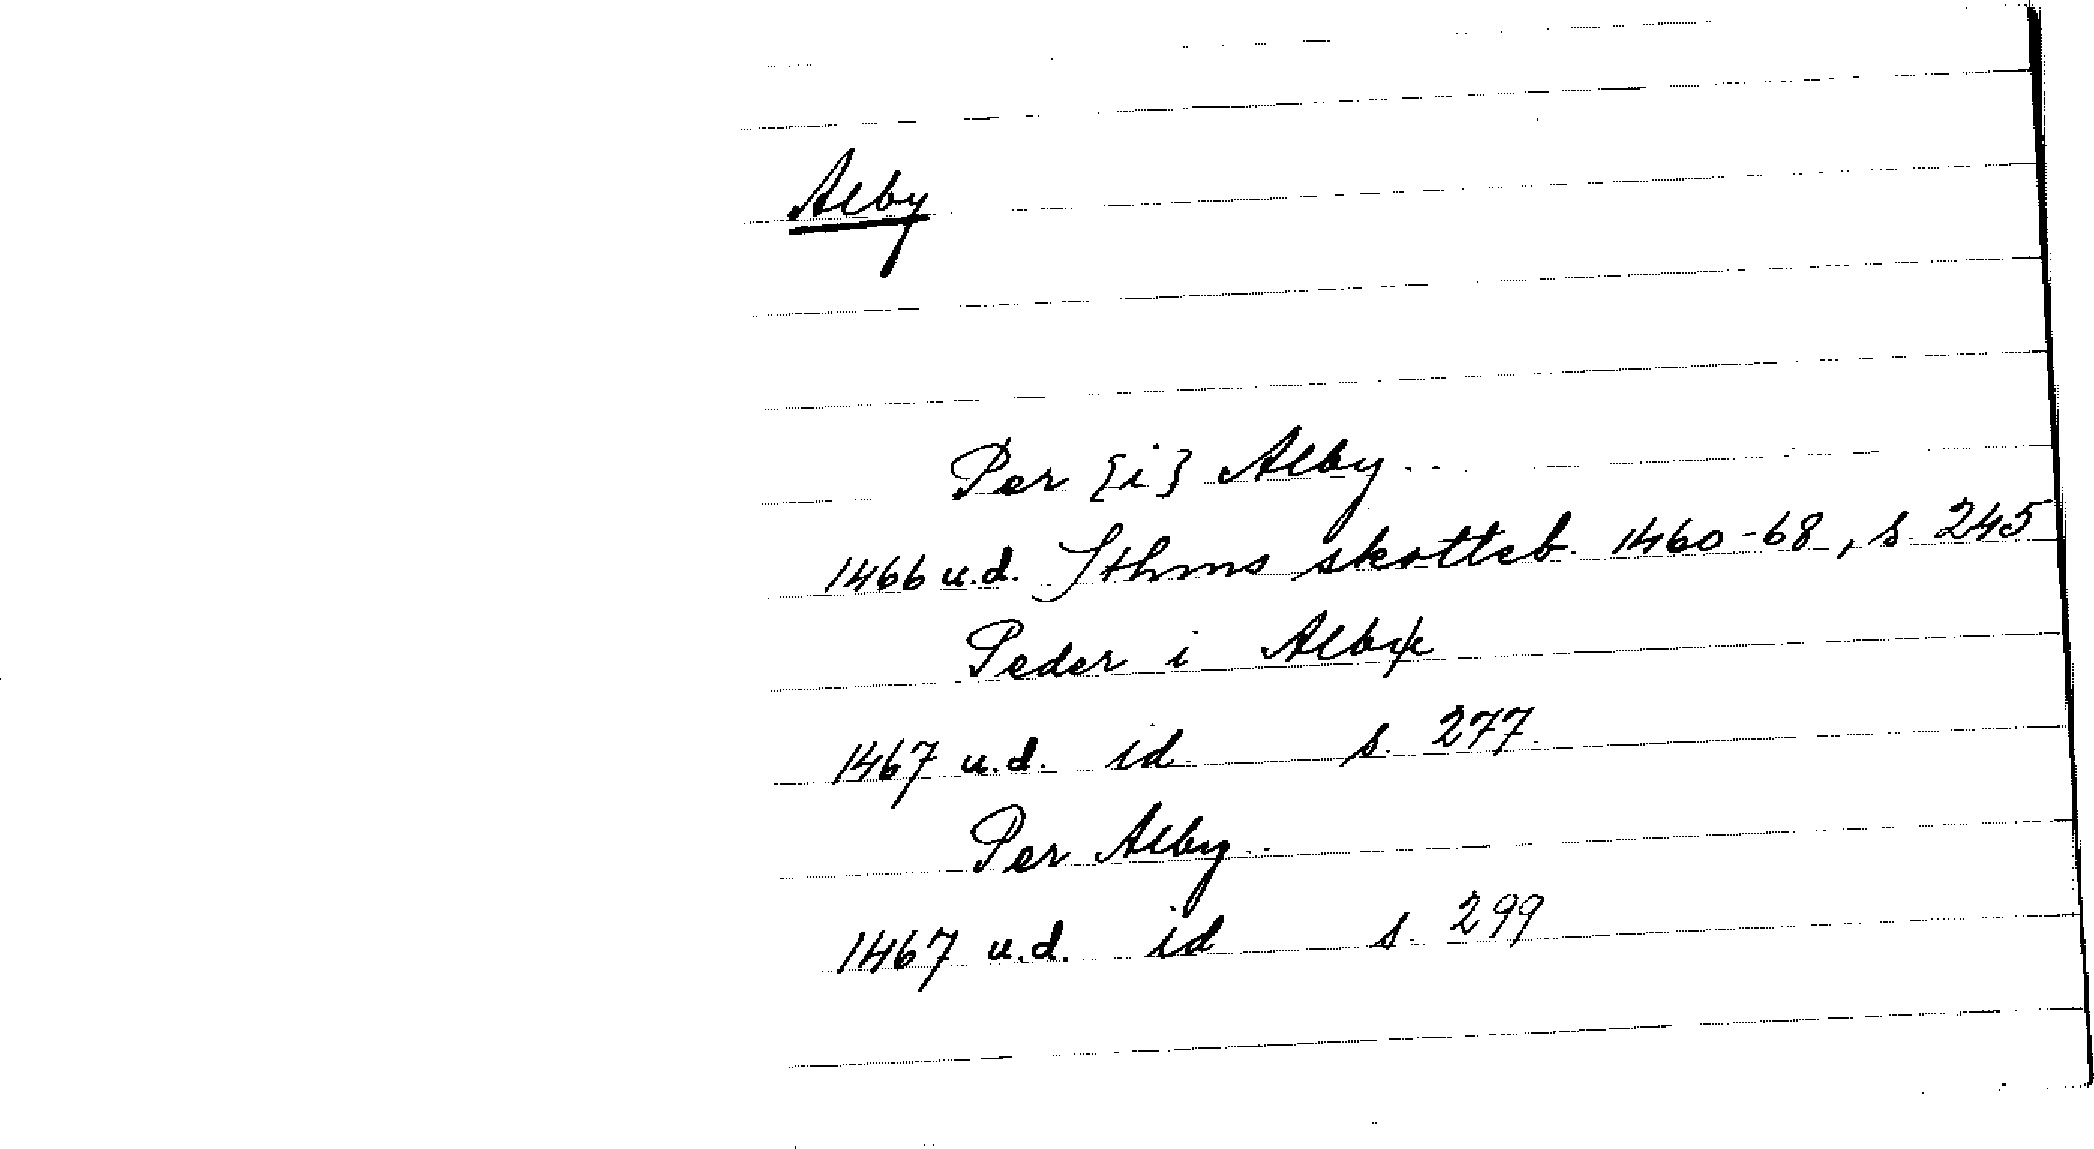 Alby
Per {i} Alby
1466 u.d. Sthms skotteb. 1460-68, s 245
Peder i Albÿ
1467 u.d. id s. 277.
Per Alby
1467 u.d. id s. 299